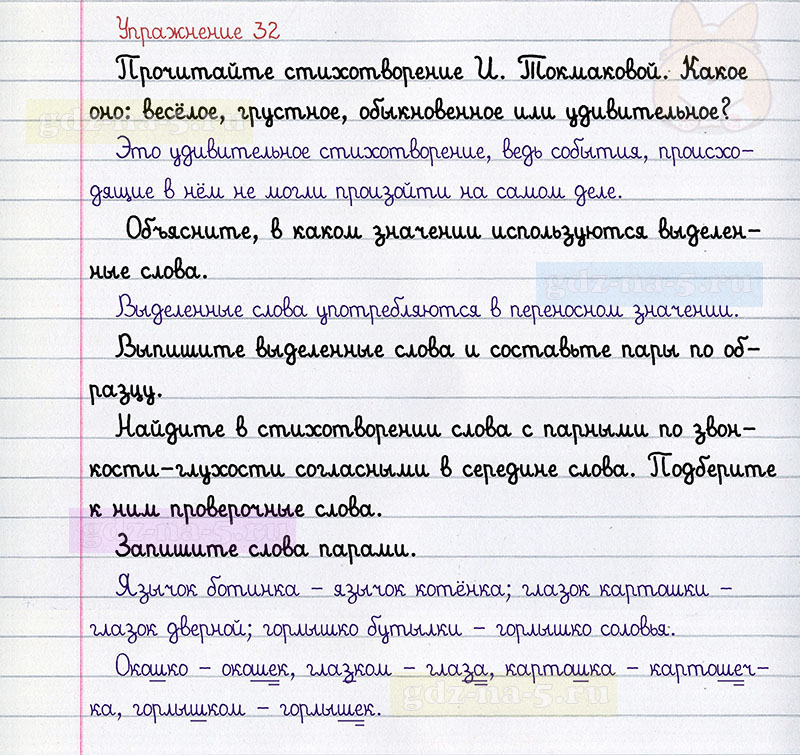 Упражнение 32
Прочитайте стихотворение И. Токмаковой. Какое
оно: весёлое, грустное, обыкновенное или удивительное?
gdz-na-5.ru
Это удивительное стихотворение, ведь события, происхо-
дящие в нём не могли произойти на самом деле.
Объясните, в каком значении используются выделен-
ные слова.
gdz-na-5.ru
Выделенные слова употребляются в переносном значении.
Выпишите выделенные слова и составьте пары по об-
разцу.
Найдите в стихотворении слова с парными по звон-
кости-глухости согласными в середине слова. Подберите
к ним проверочные слова.
gdz-na-5.ru
Запишите слова парами.
Язычок ботинка – язычок котёнка; глазок картошки –
глазок дверной; горлышко бутылки – горлышко соловья.
Окошко – окошек, глазком – глаза, картошка – картошеч-
ка, горлышком – горлышек.
gdz-na-5.ru